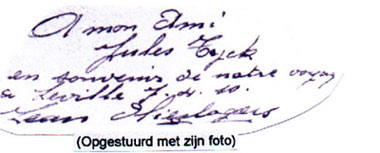 A mon Ami
Jules Tyck
en souvenir de notre voyag
a Seville 7.4.10.
Jean
(Opgestuurd met zijn foto)